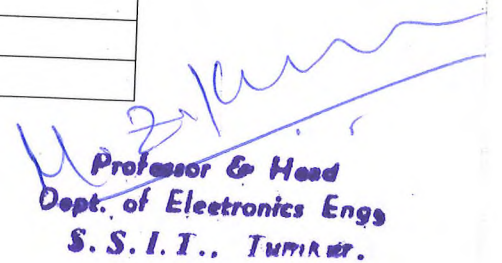 Professor & Head
Dept. of Electronics Engg
S. S. I. T., Tumkur.